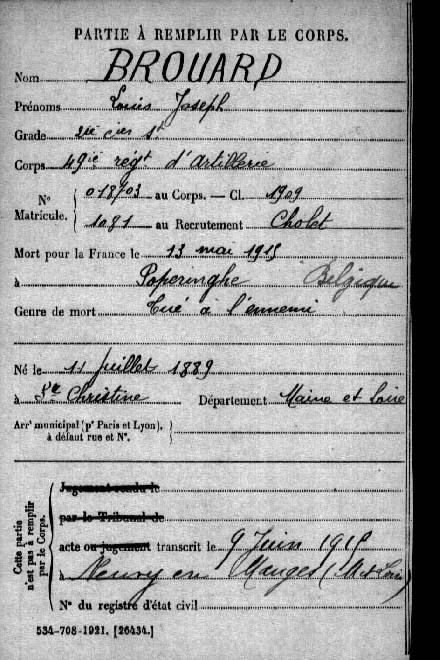 PARTIE À REMPLIR PAR LE CORPS.
Nom BROUARD
Prénoms Louis Joseph
Grade 2me cer St
Corps 49ie régt d'Artillerie
N° Matricule. 018703 au Corps. — Cl. 1909
1081 au Recrutement Cholet
Mort pour la France le 13 mai 1915
à Poperinghe Belgique
Genre de mort Tué à l'ennemi
Né le 11 Juillet 1889
à Ste Christine Département Maine et Loire
Arrt municipal (pr Paris et Lyon), à défaut rue et N°.
Cette partie n'est pas à remplir par le Corps.
Jugement rendu le
par le Tribunal de
acte ou jugement transcrit le 9 Juin 1915
à Neuvy en Mauges (M et Loire)
N° du registre d'état civil
534-708-1921. [26434.]